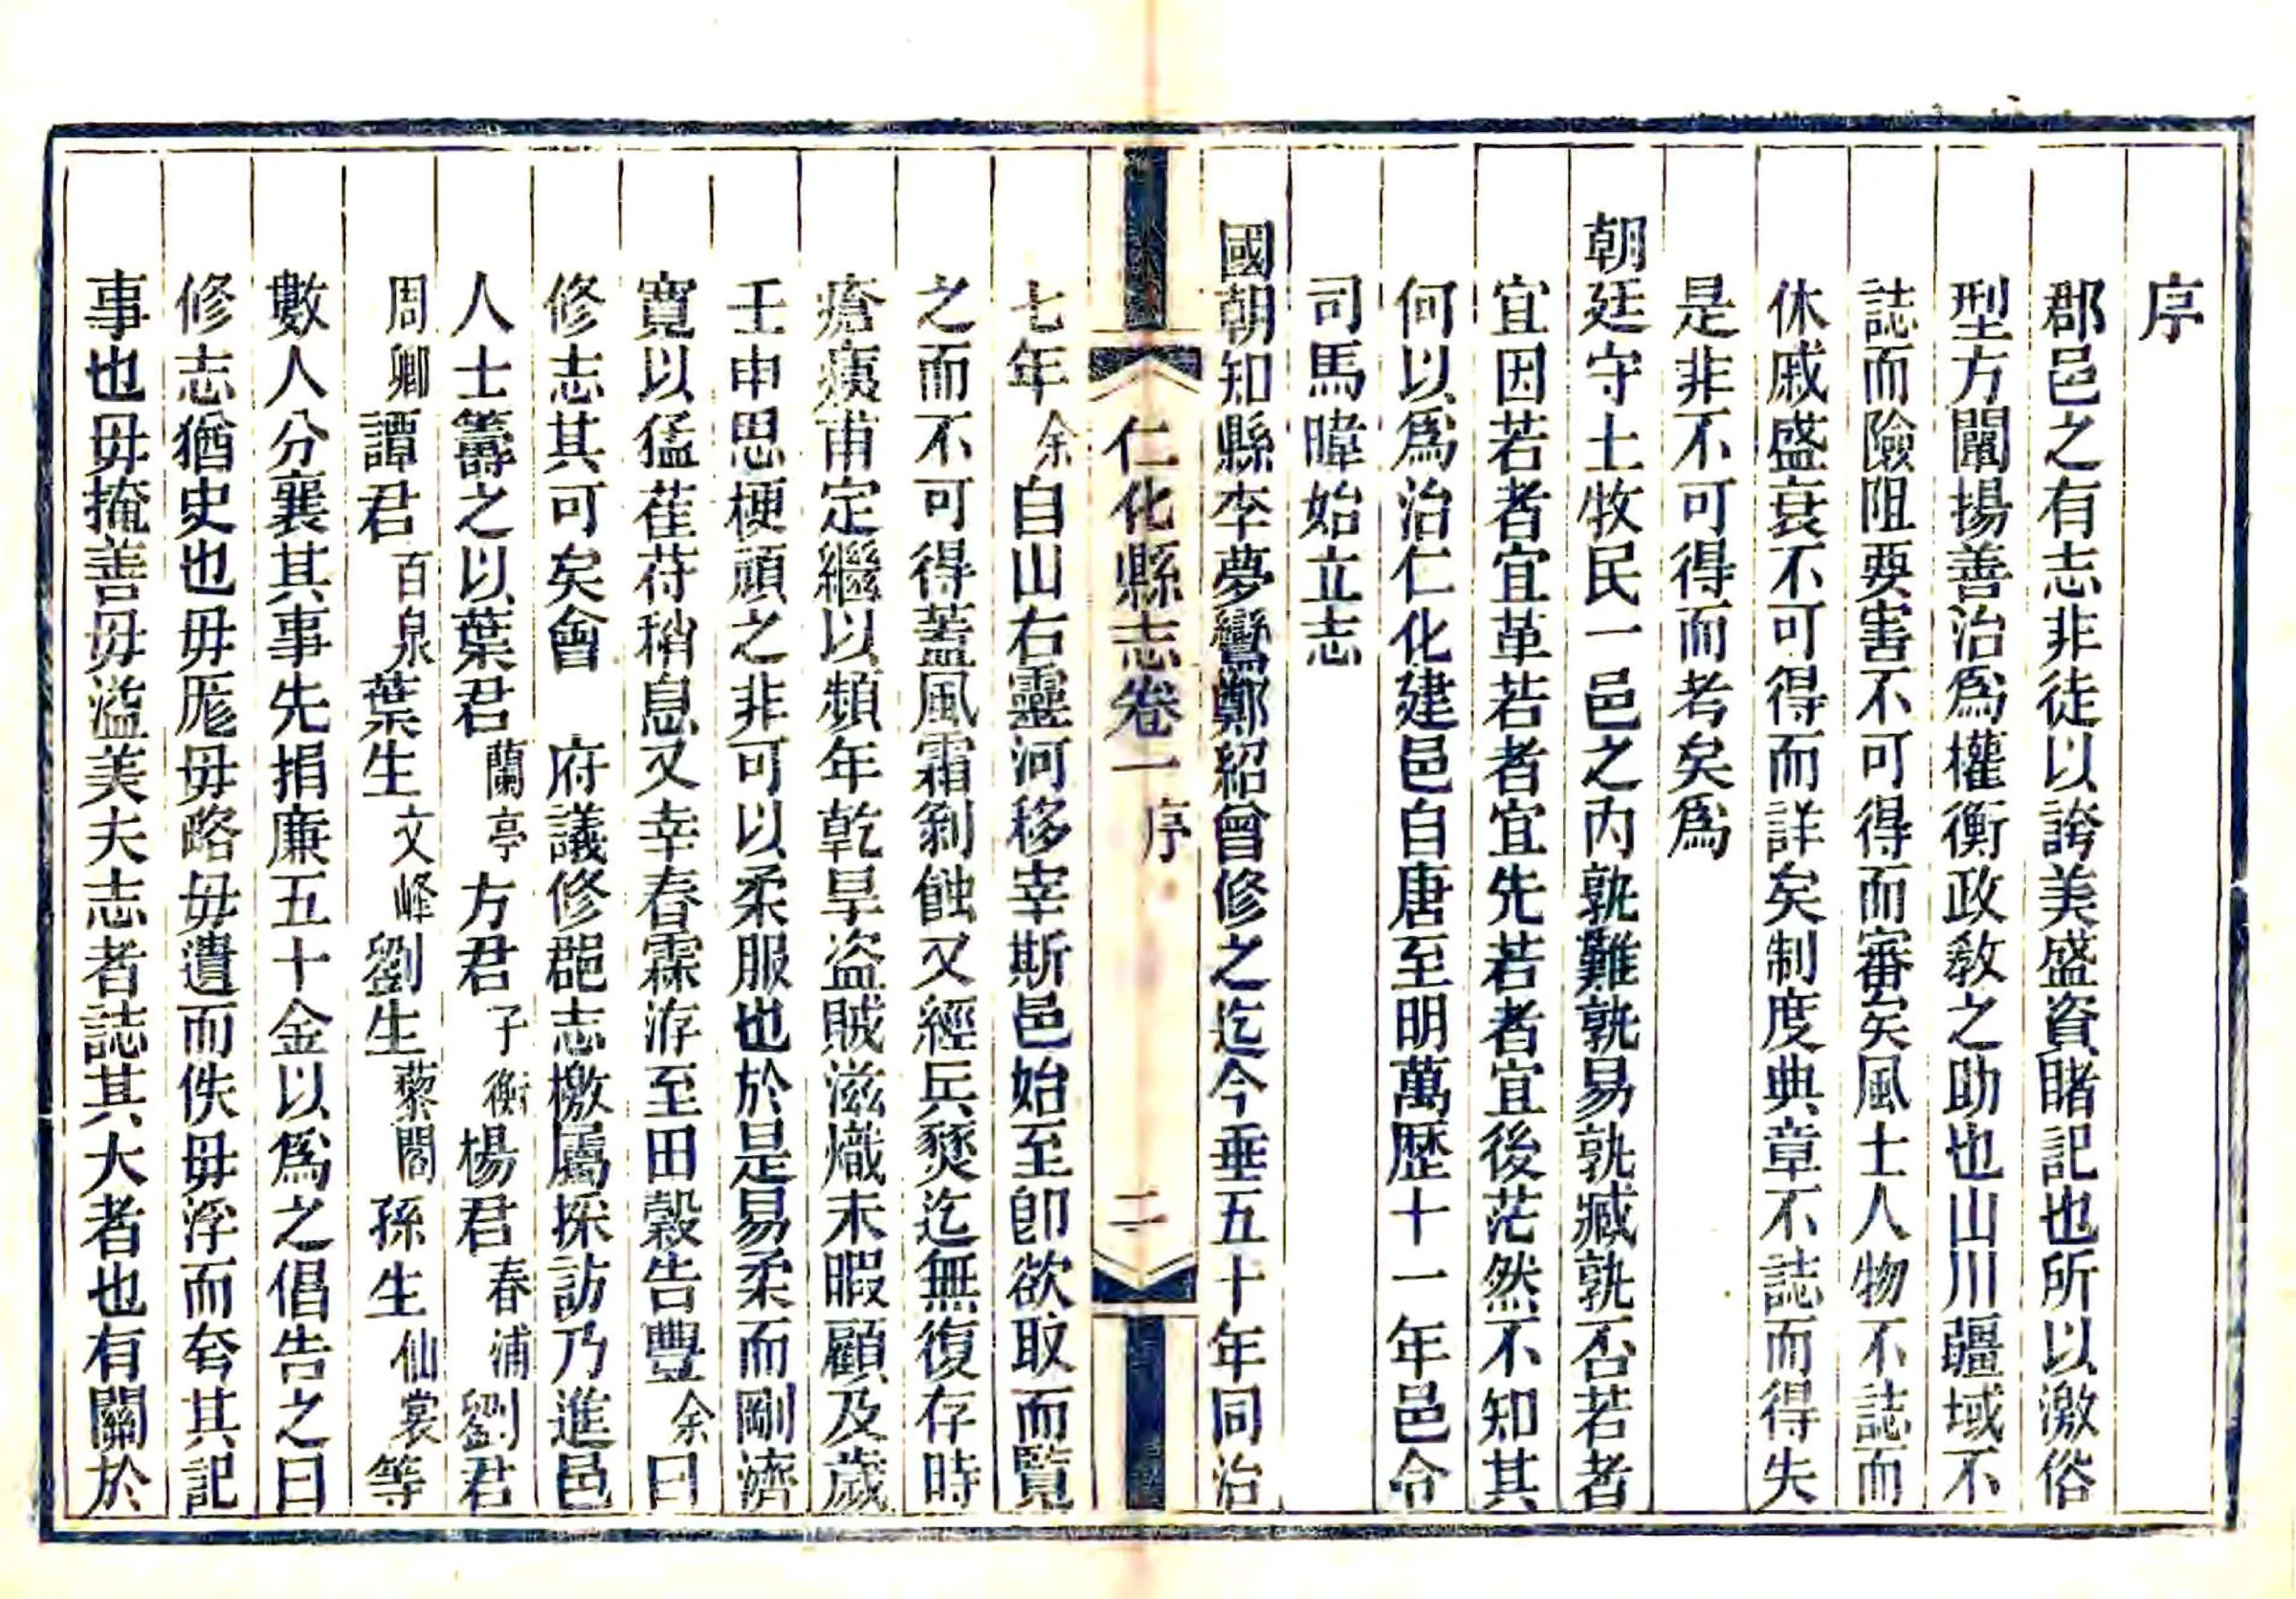 序
郡邑之有志非徒以誇美盛資睹記也所以激俗
型方闡揚善治爲權衡政敎之助也山川疆域不
誌而險阻要害不可得而審矣風土人物不誌而
休戚盛衰不可得而詳矣制度典章不誌而得失
是非不可得而考矣爲
朝廷守土牧民一邑之內孰難孰易孰臧孰否若者
宜因若者宜革若者宜先若者宜後茫然不知其
何以爲治仁化建邑自唐至明萬歷十一年邑令
司馬暐始立志
國朝知縣李夢鸞鄭紹曾修之迄今垂五十年同治
仁化縣志卷一 序 二
七年余自山右靈河移宰斯邑始至卽欲取而覽
之而不可得蓋風霜剝蝕又經兵燹迄無復存時
瘡痍甫定繼以頻年乾旱盜賊滋熾未暇顧及歲
壬申思梗頑之非可以柔服也於是易柔而剛濟
寬以猛萑苻稍息又幸春霖洊至田穀告豐余曰
修志其可矣會 府議修郡志檄屬採訪乃進邑
人士籌之以葉君蘭亭方君子衡楊君春浦劉君
周卿譚君百泉葉生文峰劉生藜閣孫生仙裳等
數人分襄其事先捐廉五十金以爲之倡告之曰
修志猶史也毋厖毋略毋遺而佚毋浮而夸其記
事也毋掩善毋溢美夫志者誌其大者也有關於